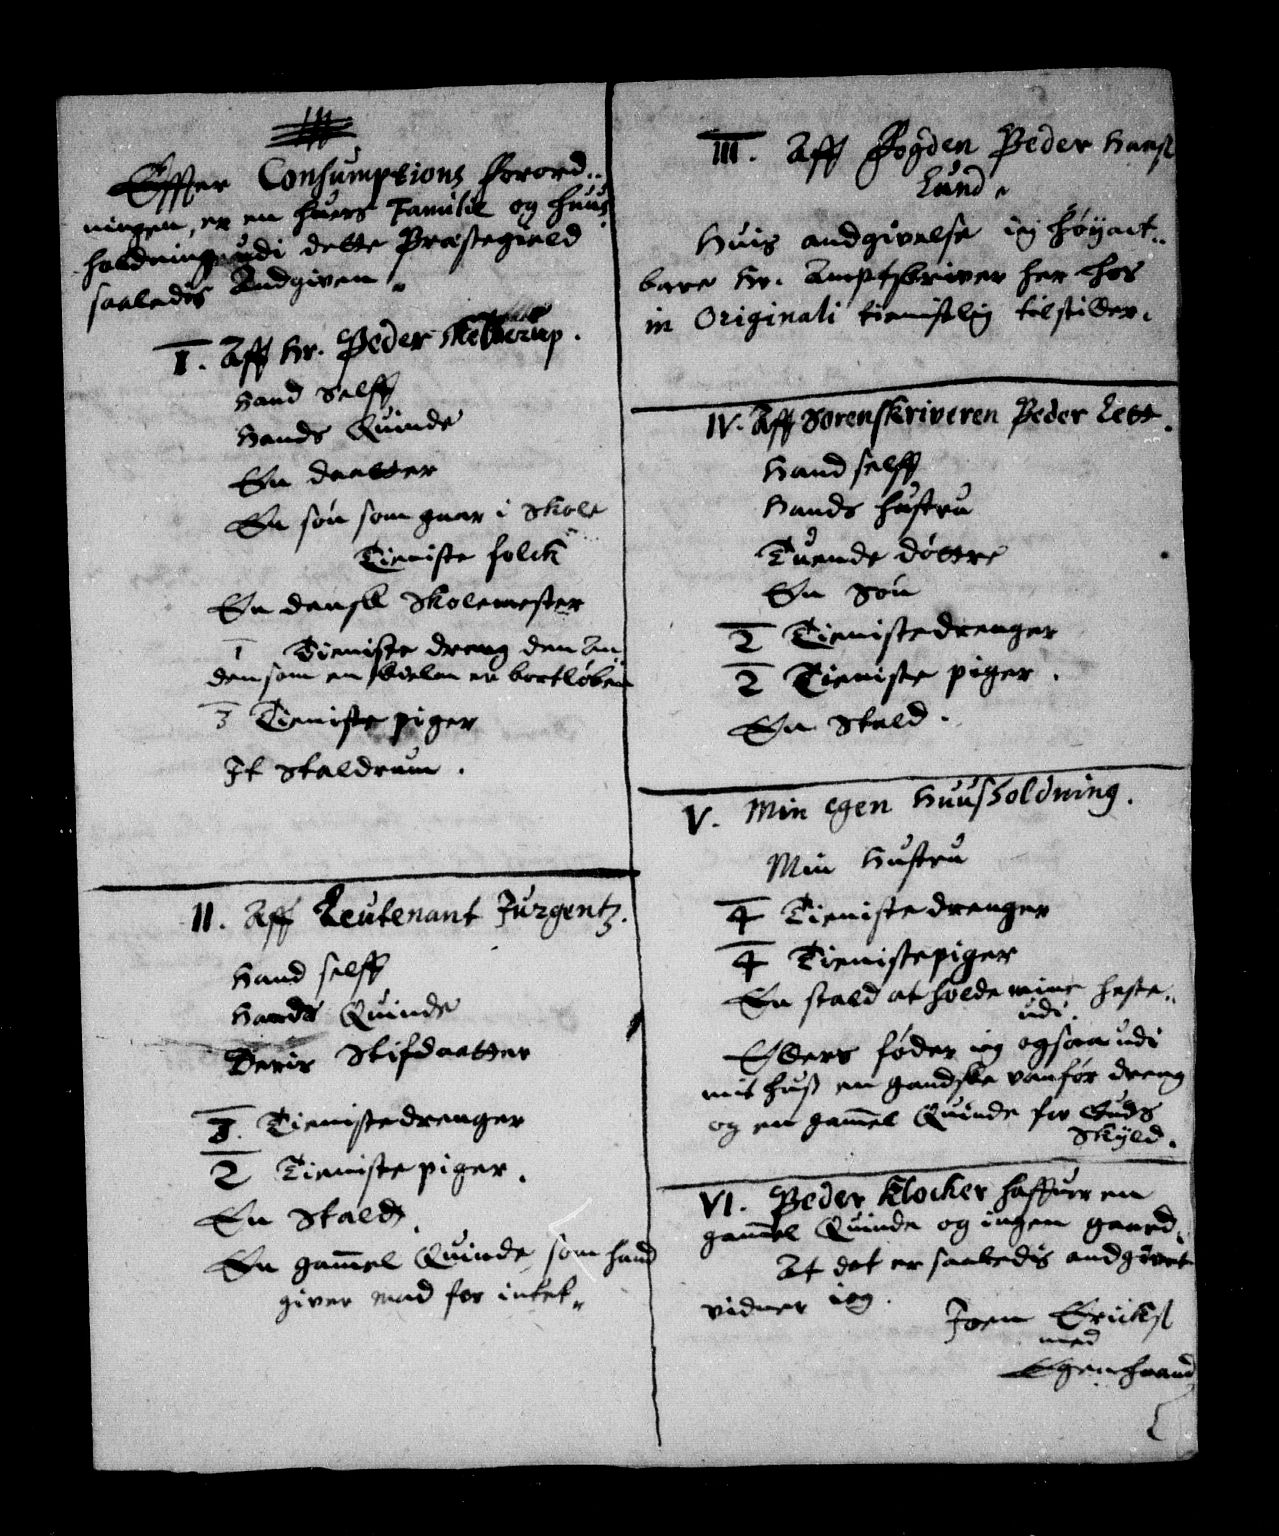 Effter Consumptions Forord..
ningen, er en hvers Familie og huus
holdning udi dette Præstegield
saaledis Andgiven
I. Aff Hr. Peder
Hand Selff
Hands Quinde
En daatter
En søn som gaar i Skole
Tieniste folck
En dansk Skolemester
1 Tieniste dreng den An
den som en er bortløben
3 Tieniste piger
It Staldrum.
II. Aff Leutenant Jurgentz.
Hand selff
Hands Quinde
Deris Stifdaatter
3. Tienistedrenger
2 Tieniste piger.
En Stald.
En gam̅el Quinde som hand
giver mad for intet
III. Aff Fogden Peder Hanss
Lund.
Huis andgivelse ieg høyact..
bare Hr. Amptskriver her hos
in Originali tienistlig tilstiller.
IV. Aff Sorenskriveren Peder Lett.
Hand selff
Hands hustru
Tuende døttre
En Søn
2 Tienistedrenger
2 Tieniste piger.
En Stald.
V. Min egen Huusholdning.
Min Hustru
4 Tienistedrenger
4 Tienistepiger
En stald at holde mine heste..
udi.
Ellers føder ieg ogsaa udi
mit huss en gandske vanfør dreng
og en gam̅el Quinde for Guds
Skyld.
VI. Peder Klocker haffuer en
gam̅el Quinde og ingen gaard.
At det er saaledis andgivet
vidner ieg.
Joen Erickss
med
Egenhaand